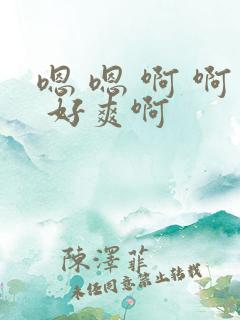 嗯嗯啊啊
好爽啊
陳澤菲
未经同意禁止转载